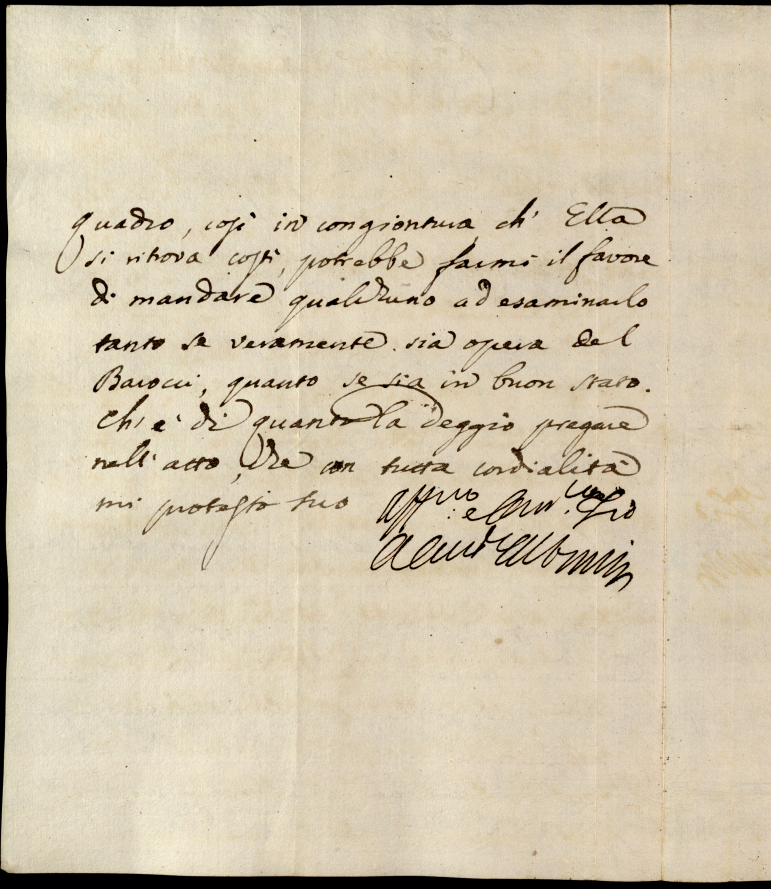 quadro, così in congiontura ch' Ella
si ritrova costì, potrebbe farmi il favore
di mandare qualcuno ad esaminarlo
tanto se veramente sia opera del
Barocci, quanto se sia in buon stato.
Ch' è di quanto la deggio pregare
nell' atto, che con tutta cordialità
mi protesto suo
Aff.mo e